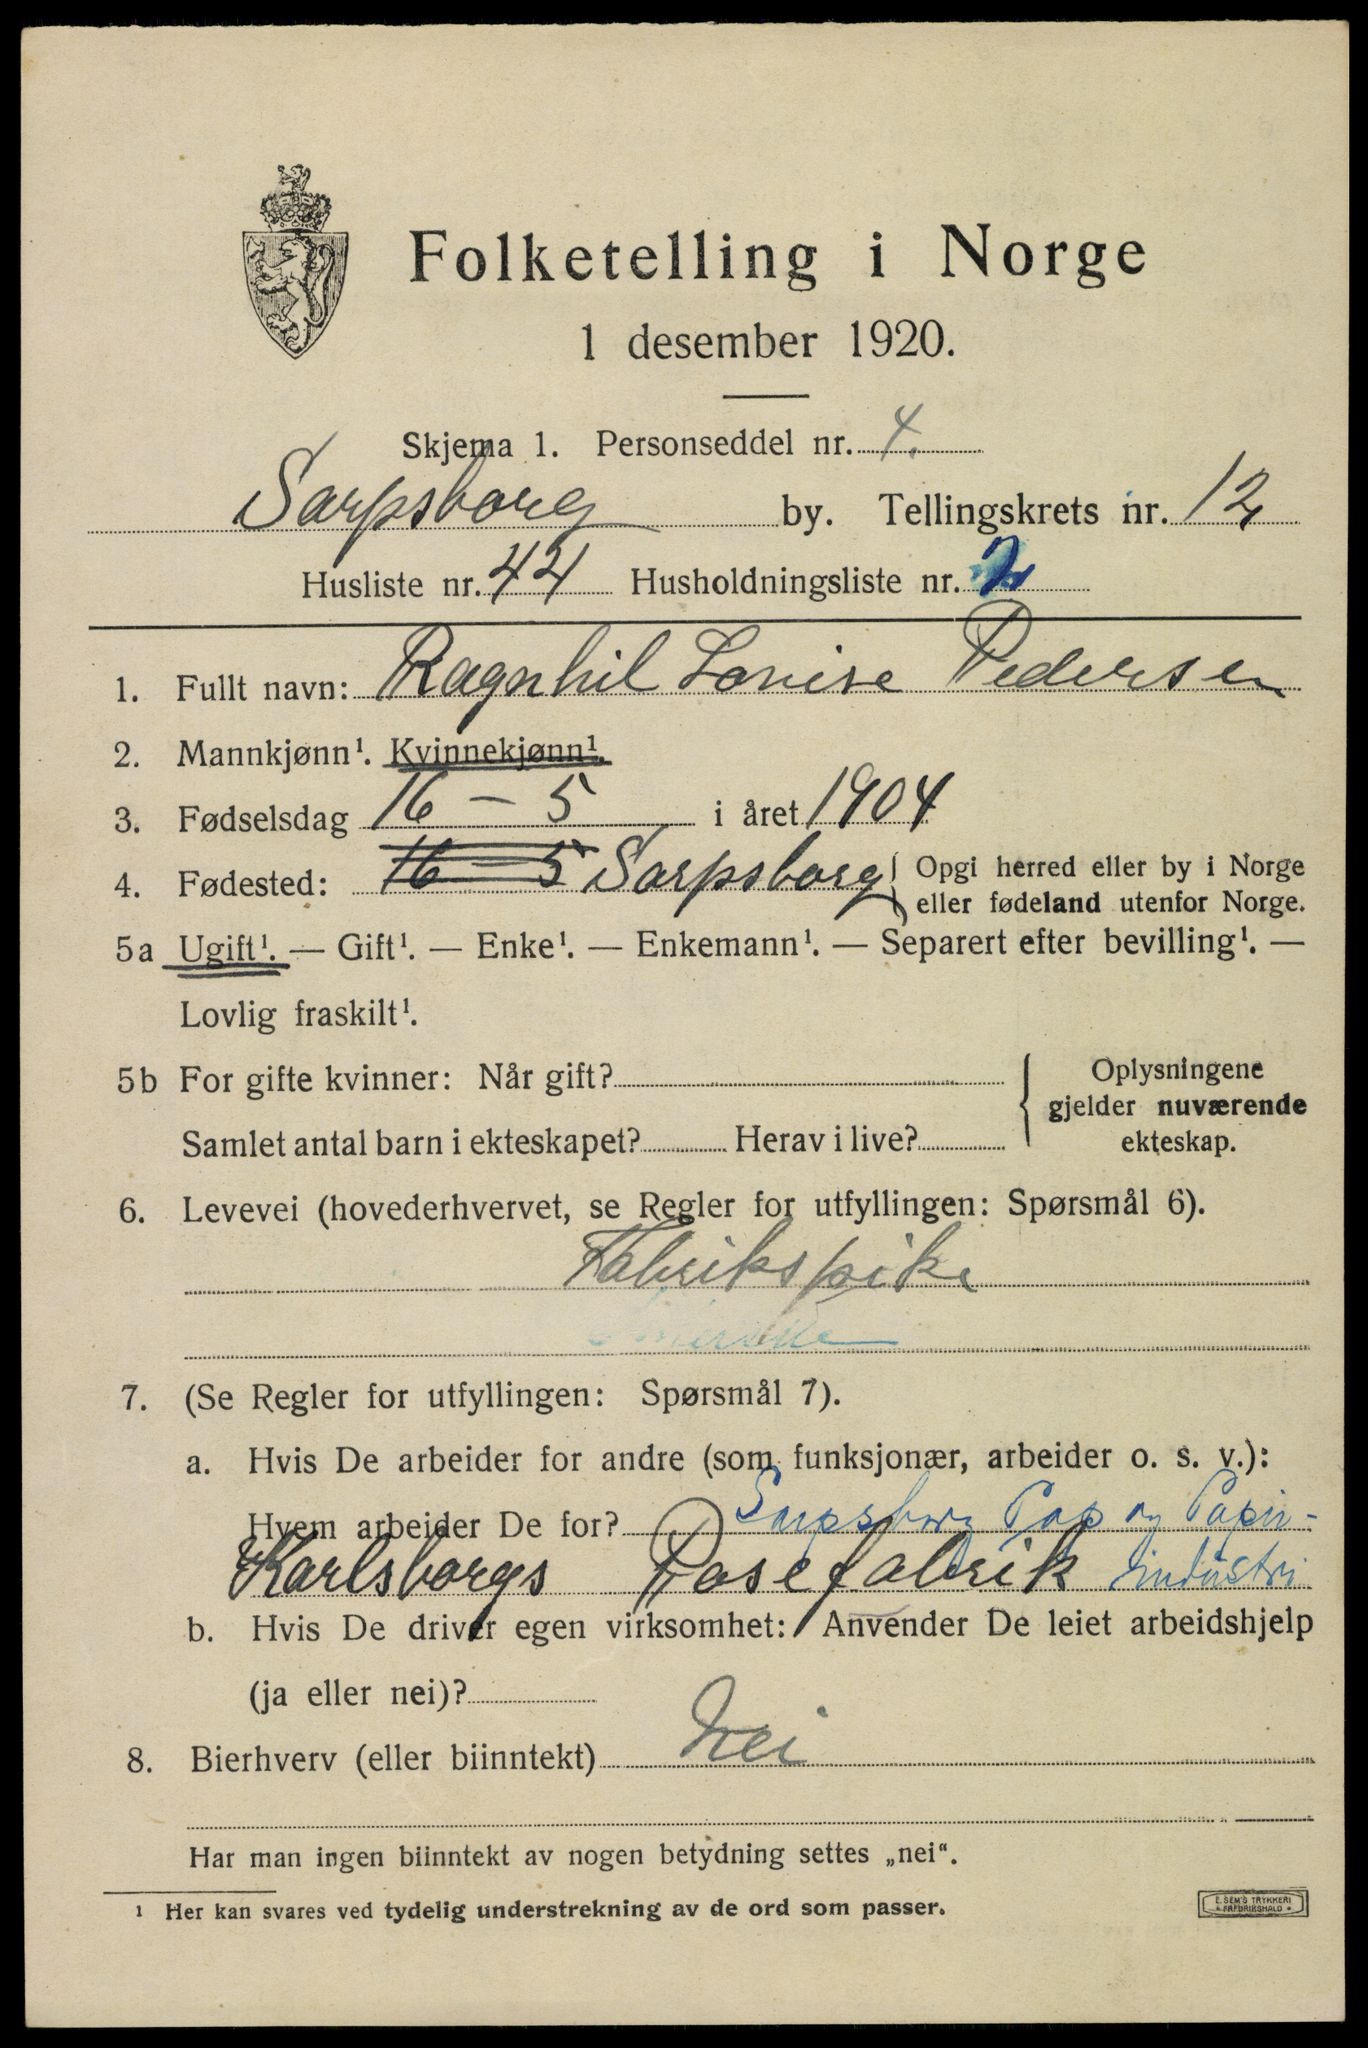 Folketelling i Norge
1 desember 1920.
Skjema 1. Personseddel nr. 4.
Sarpsborg by. Tellingskrets nr. 12
Husliste nr. 44 Husholdningsliste nr. 2
1. Fullt navn: Ragnhil Lovise Pedersen
2. Mannkjønn¹. Kvinnekjønn¹.
3. Fødselsdag 16 – 5 i året 1904
4. Fødested: 16 – 5 Sarpsborg { Opgi herred eller by i Norge
eller fødeland utenfor Norge.
5a Ugift¹. — Gift¹. — Enke¹. — Enkemann¹. — Separert efter bevilling¹. —
Lovlig fraskilt¹.
5b For gifte kvinner: Når gift?
Samlet antal barn i ekteskapet? Herav i live?
{ Oplysningene
gjelder nuværende
ekteskap.
6. Levevei (hovederhvervet, se Regler for utfyllingen: Spørsmål 6).
Fabrikspike
7. (Se Regler for utfyllingen: Spørsmål 7).
a. Hvis De arbeider for andre (som funksjonær, arbeider o. s. v.):
Hvem arbeider De for? Sarpsborg Pap og Papir-
Karlsborgs Posefabrik industri
b. Hvis De driver egen virksomhet: Anvender De leiet arbeidshjelp
(ja eller nei)?
8. Bierhverv (eller biinntekt) Nei
Har man ingen biinntekt av nogen betydning settes „nei“.
¹ Her kan svares ved tydelig understrekning av de ord som passer.
E. SEM'S TRYKKERI
FREDRIKSHALD